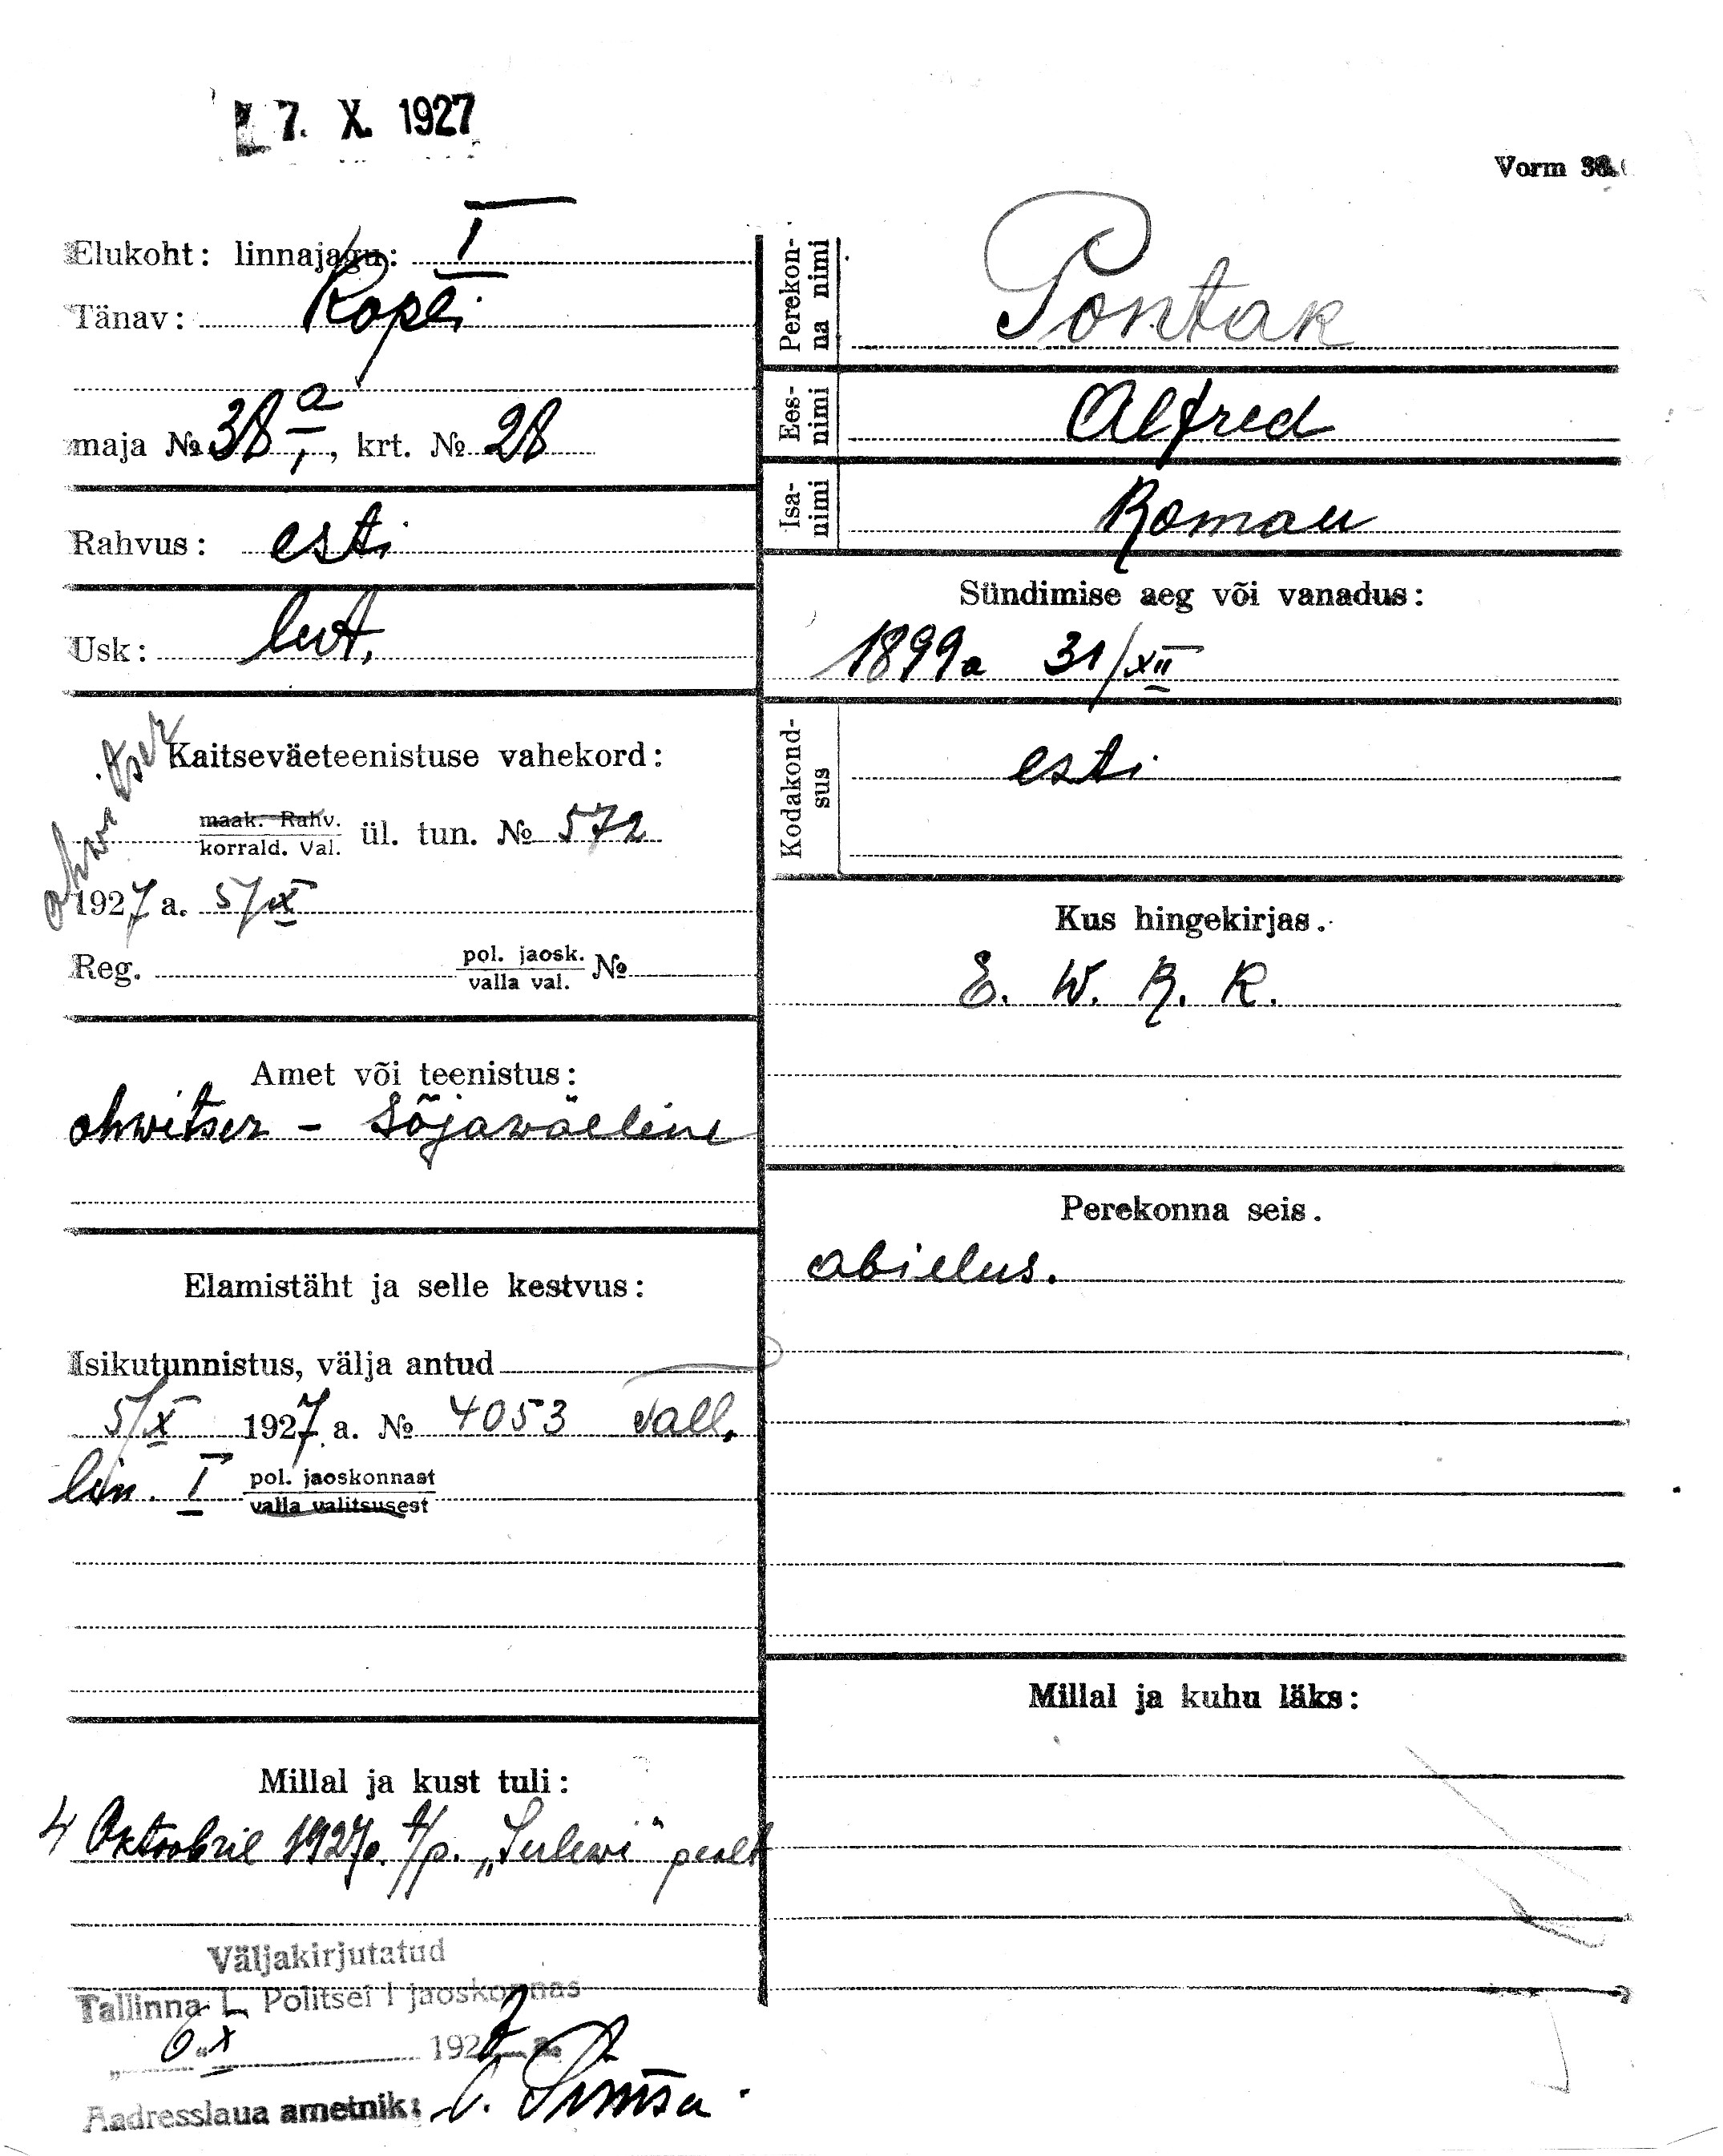 7. X. 1927
Vorm 36.
Elukoht: linnajagu: I
Tänav: Kopli
maja № 38 a, krt. № 28
Rahvus: esti
Usk: lut.
Kaitseväeteenistuse vahekord:
ohwitser
maak. Rahv.
korrald. Val. ül. tun. № 572
1927 a. 5/X
Reg. pol. jaosk.
valla val. №
Amet või teenistus:
ohwitser - sõjawäeline
Elamistäht ja selle kestvus:
Isikutunnistus, välja antud
5/X 1927 a. № 4053 Tall.
lin. I pol. jaoskonnast
valla valitsusest
Millal ja kust tuli:
4 Oktoobril 1927a. t/p. „Sulewi" pealt
Väljakirjutatud
Tallinna L. Politsei I jaoskonnas
„6" X 1927 a.
Aadresslaua ametnik:
Perekon-
na nimi
Pontak
Ees-
nimi
Alfred
Isa-
nimi
Roman
Sündimise aeg või vanadus:
1899a 31/XII
Kodakond-
sus
esti
Kus hingekirjas.
E. W. R. R.
Perekonna seis.
abielus.
Millal ja kuhu läks: